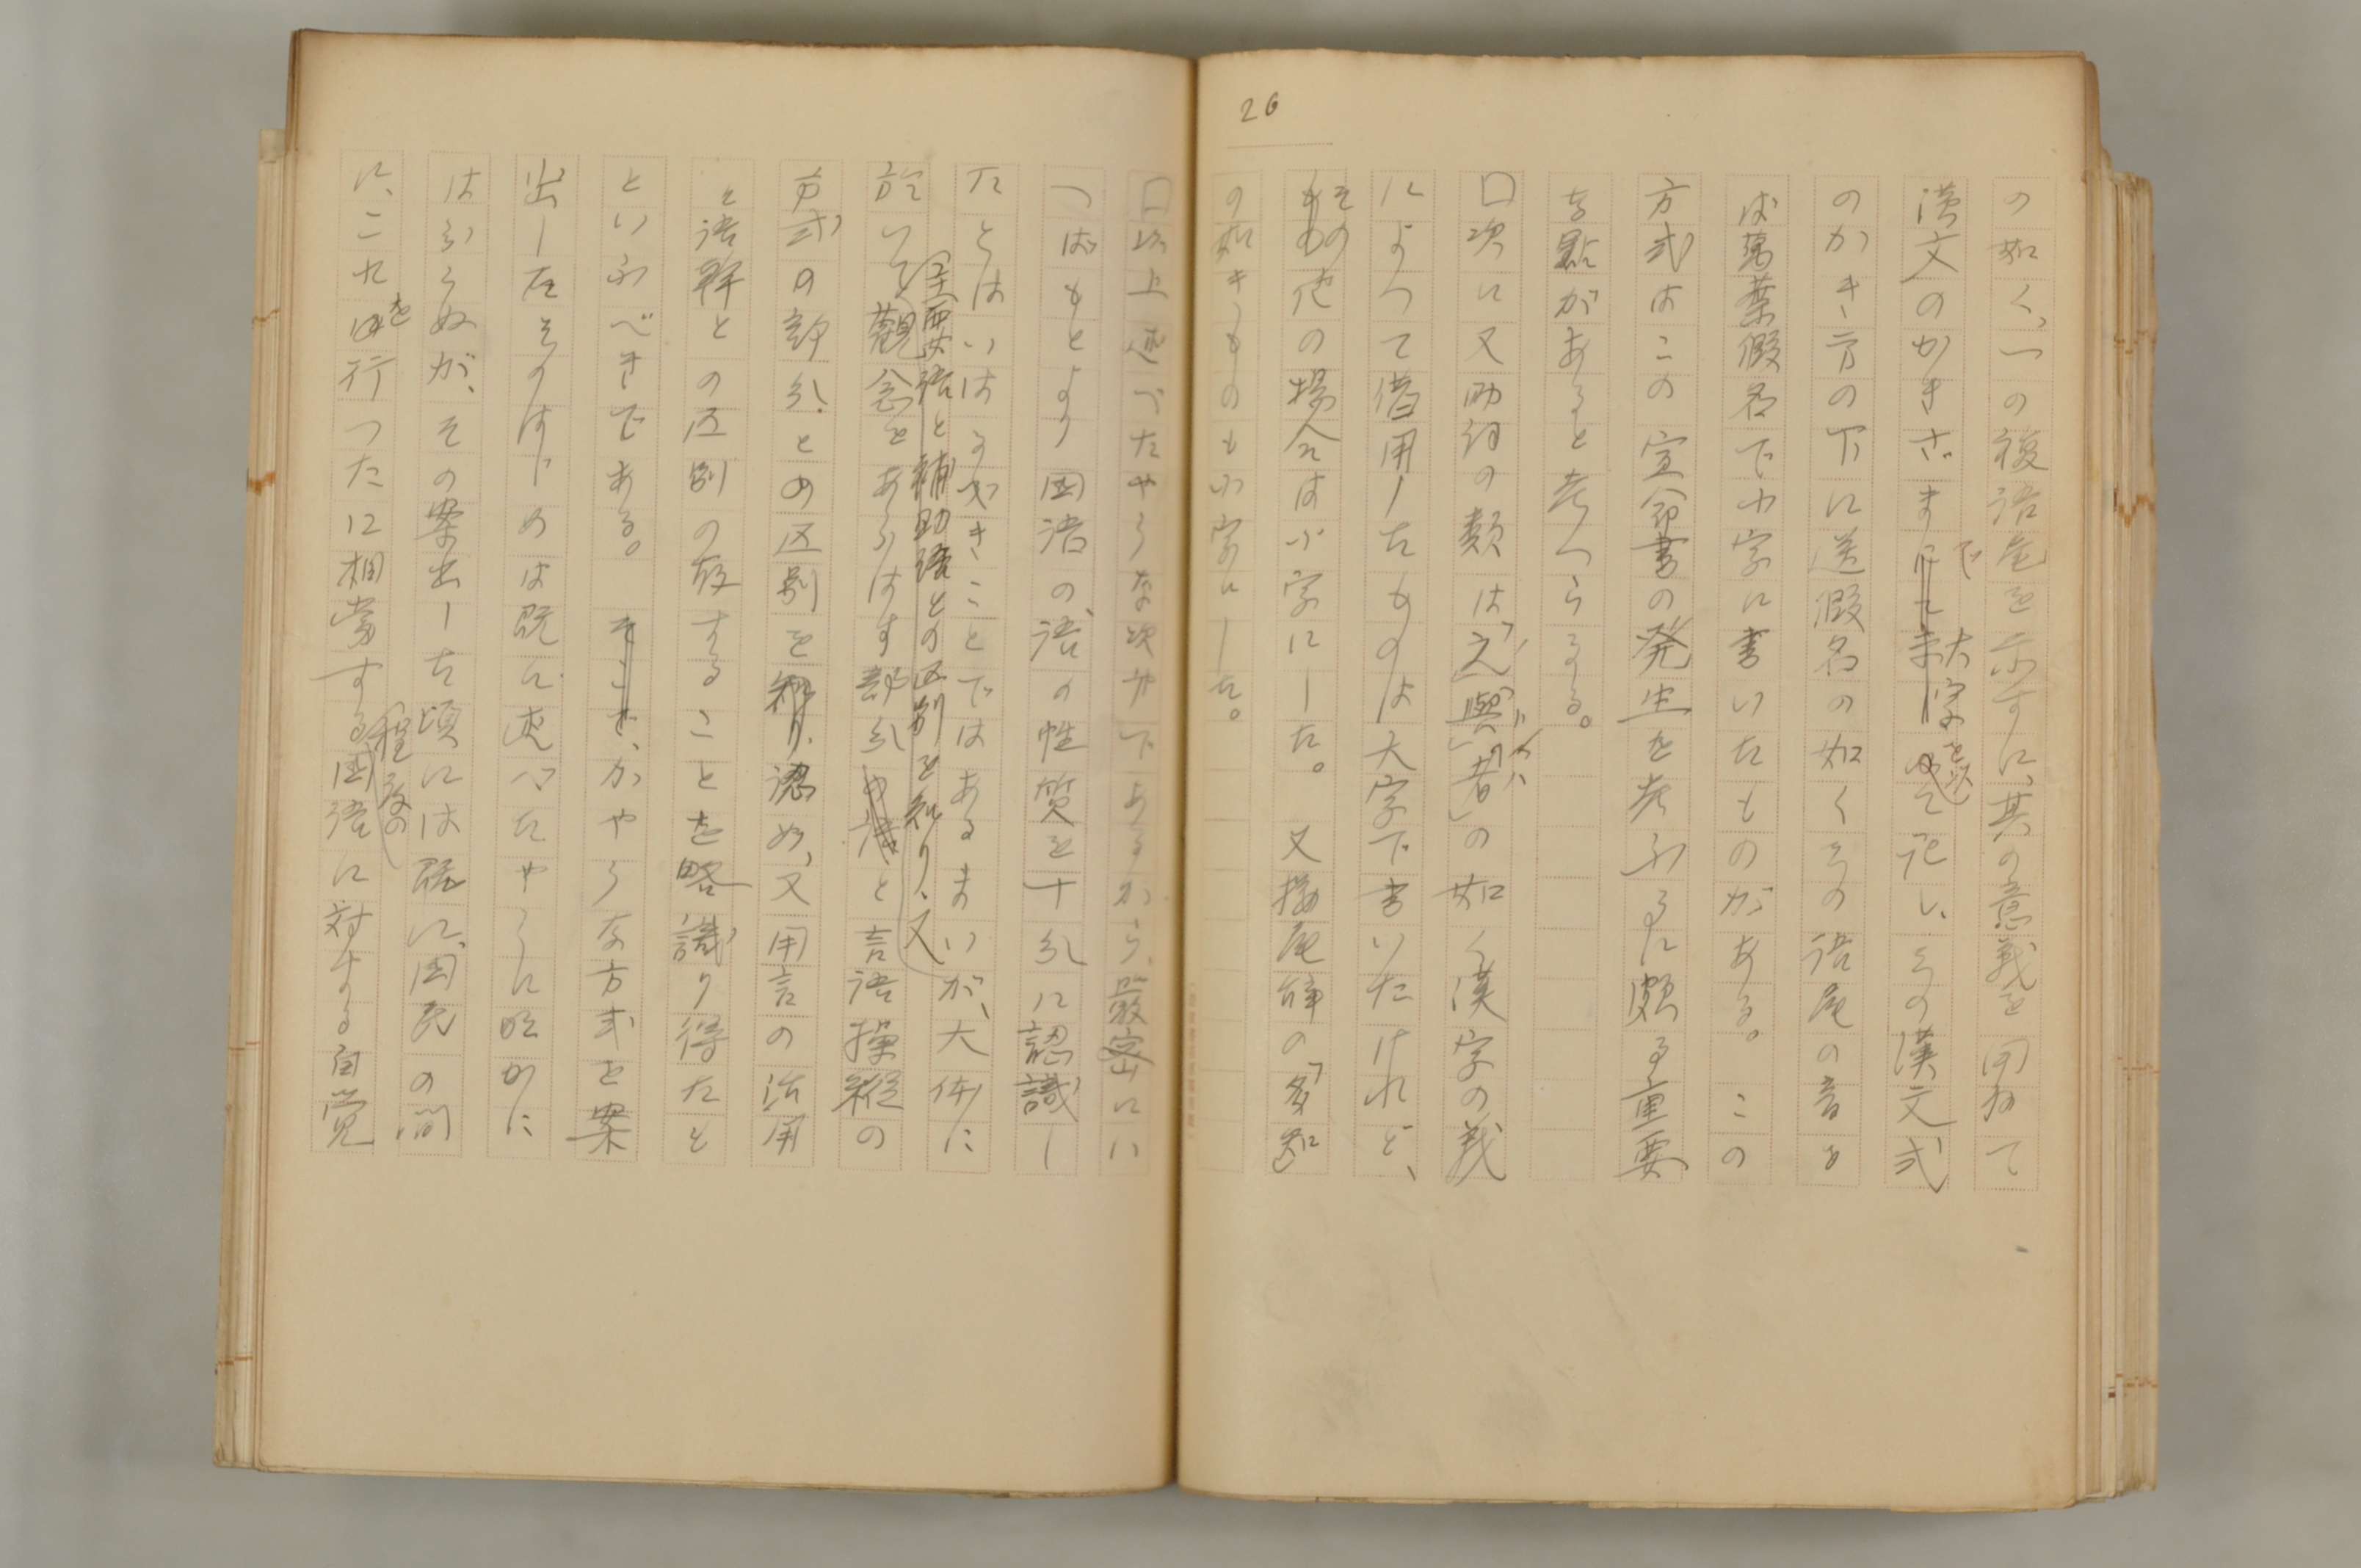 26
の如く、一の複語尾を示すに、其の意義を同ねて
漢文のかきざまで大字を以て記し、その漢文式
のかき方の下に送假名の如くその語尾の音を
ば萬葉假名で小字に書いたものがある。この
方式はこの宣命書の発生を考ふるに頗る重要
な點があると考へらるる。
□次に又助詞の類は「之」「與」「者」の如く漢字の義
によつて借用したものは大字で書いたけれど、
その他の場合は小字にした。又接尾辞の「多知」
の如きものも小字にした。
□以上述べたやうな次第であるから、厳密にい
へばもとより国語の、語の性質を十分に認識し
たとはいはるべきことではあるまいが、大体に
於いて、主要語と補助語との区別を知り、又
観念をあらはす部分と言語操縦の
方式の部分との区別を認め、又用言の活用
と語幹との区別の存することを略識り得たも
といふべきである。かやうな方式を案
出したそのはじめは既に述べたやうに明かに
は分らぬが、その案出した頃には既に、国民の間
に、これを行つたに相當する程度の国語に対する自覚